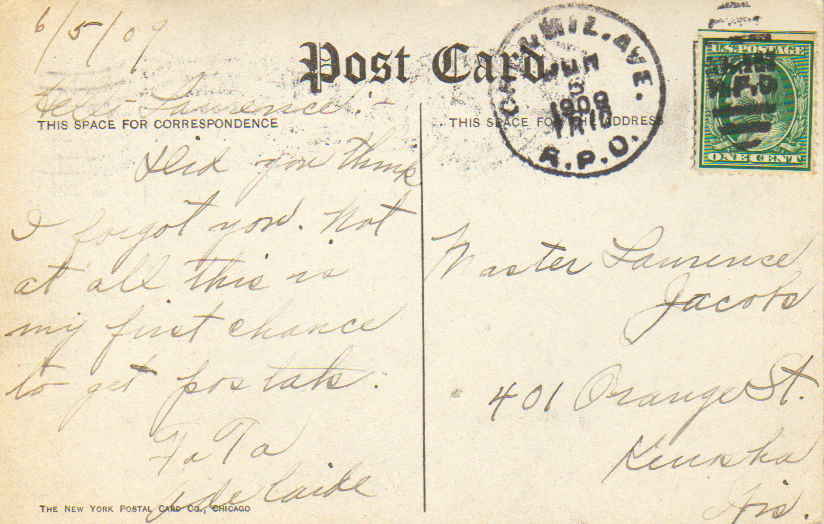 6/5/09
Post Card.
Lawrence:-
THIS SPACE FOR CORRESPONDENCE
Did you think
I forgot you. Not
at all this is
my first chance
to get postals.
Ta Ta
Adelaide
THE NEW YORK POSTAL CARD CO., CHICAGO
THIS SPACE FOR THE ADDRESS
MIL. AVE.
JUN
6
1909
R.P.O.
U.S. POSTAGE
R.P.O
ONE CENT
Master Lawrence
Jacobs
401 Orange St.
Kenosha
Wis.